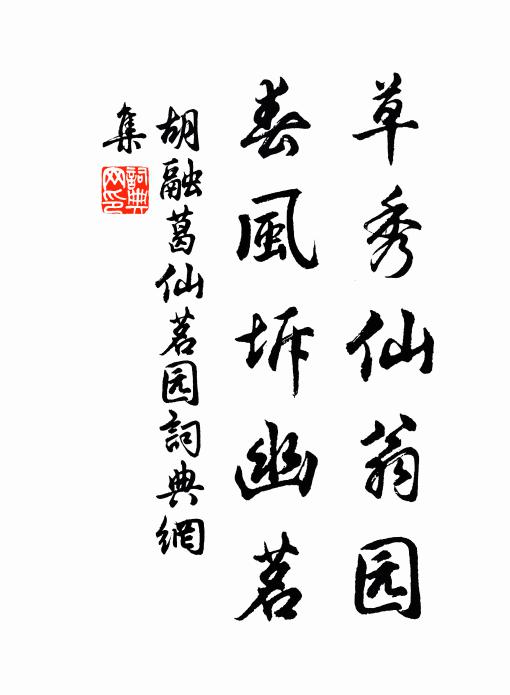 草秀仙翁园
春風坼幽茗
胡融葛仙茗园詞典網
集
詞典网印